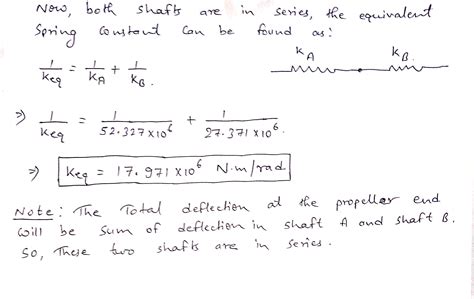 Now, both shafts are in series, the equivalent
Spring constant can be found as:
1/keq = 1/kA + 1/kB.
kA kB.
⇒ 1/keq = 1/52.327×10⁶ + 1/27.371×10⁶.
⇒ keq = 17.971×10⁶ N.m/rad
Note: The Total deflection at the propeller end
will be sum of deflection in shaft A and shaft B.
So, These two shafts are in series.